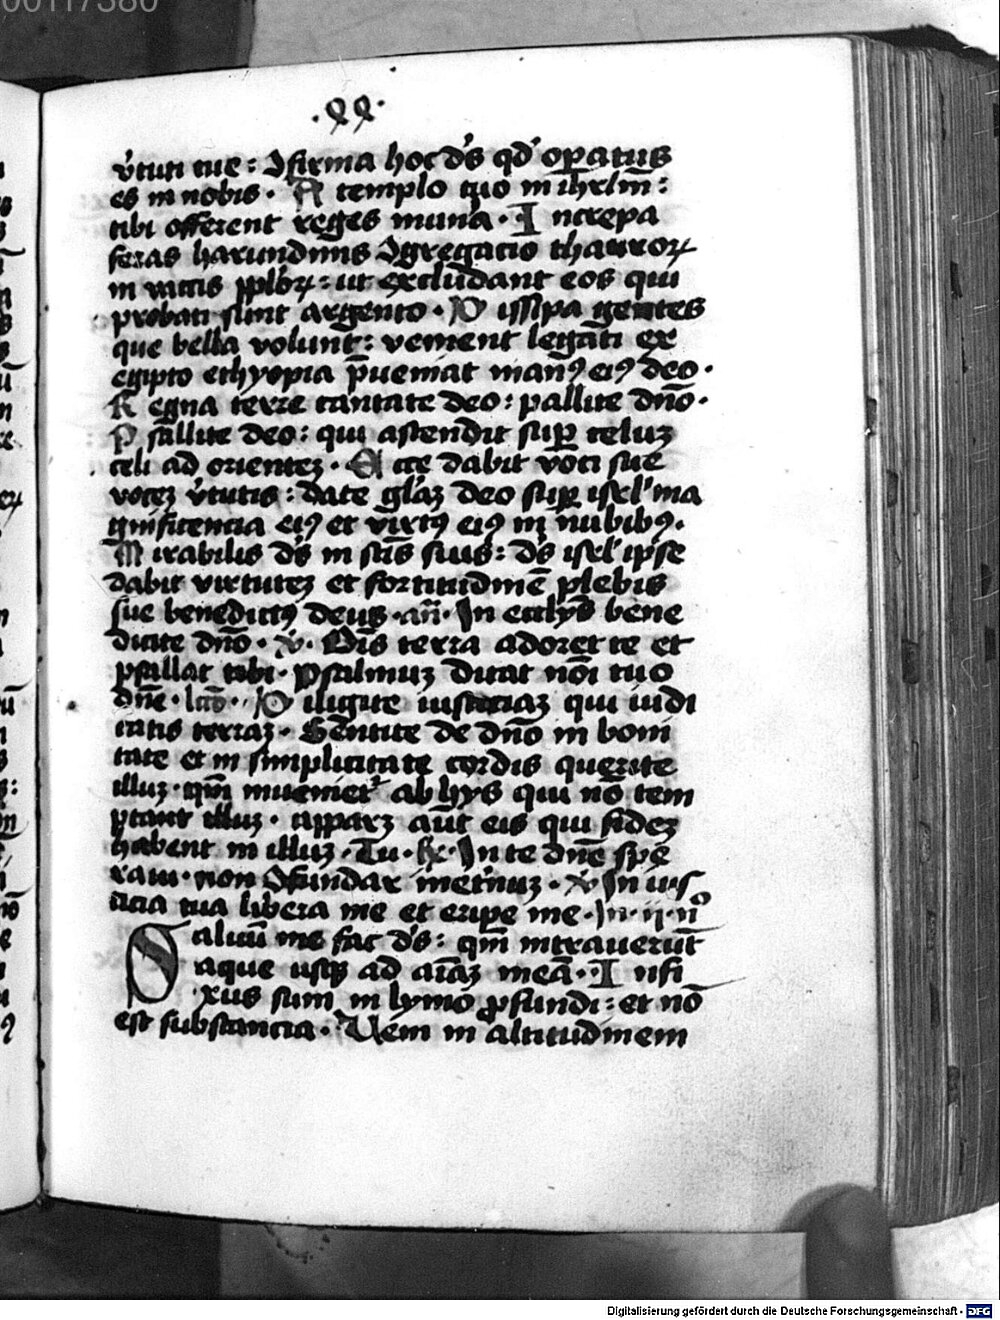 00117380
·xx·
v̓tuti tue : ꝯfirma hoc ds̓ qd̓ oꝑatus
es in nobis · A templo tuo in ihrlm̄ :
tibi offerent reges mun̓a · Increpa
feras harundinis ꝯgregacio thauroꝝ
in vaccis pplōꝝ : ut excludant eos qui
probati sunt argento · Dissipa gentes
que bella volunt : venient legati ex
egipto ethyopia p̄ueniat manꝰ eiꝰ deo ·
Regna terre cantate deo : psallite dn̄o ·
Psallite deo : qui ascendit suꝑ celuꝫ
celi ad orienteꝫ · Ecce dabit voci sue
voceꝫ v̓tutis : date gl̓aꝫ deo suꝑ isrl̓ ma
gnificencia eiꝰ et virtꝰ eiꝰ in nubibꝰ ·
Mirabilis ds̓ in sc̄is suis : ds̓ isrl̓ ipse
dabit virtuteꝫ et fortitudinē plebis
sue benedictꝰ deus · an̄ · In eccl̓ys bene
dicite dn̄o · v̓ · Om̄is terra adoret te et
psallat tibi · Psalmuꝫ dicat noī tuo
dn̄e · lc̄o · Diligite iusticiaꝫ qui iudi
catis terraꝫ · Sentite de dn̄o in boni
tate et in simplicitate cordis querite
illuꝫ · qm̄ inuenietʳ ab hys qui nō tem
ptant illuꝫ · apparꝫ aūt eis qui fideꝫ
habent in illuꝫ · Tu · R̓ · In te dn̄e spe
raui · non ꝯfundar inet̓nuꝫ · v̓ · In ius
ticia tua libera me et eripe me · In · ij · nº
Saluū me fac ds̓ : qm̄ intrauerūt
aque usqꝫ ad aīaꝫ meā · Infi
xus sum in lymo ꝓfundi : et nō
est substancia · Veni in altitudinem
Digitalisierung gefördert durch die Deutsche Forschungsgemeinschaft · DFG